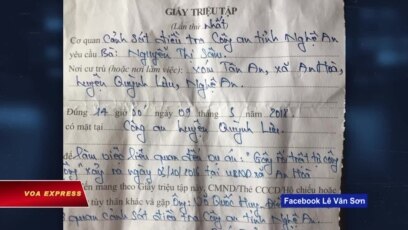 GIẤY TRIỆU TẬP
(Lần thứ nhất)
Cơ quan Cảnh sát điều tra Công an tỉnh Nghệ An
yêu cầu Bà: Nguyễn Thị
Nơi cư trú (hoặc nơi làm việc): xóm Tân An, xã An Hòa,
huyện Quỳnh Lưu, Nghệ An.
Đúng 14 giờ 00 ngày 09 tháng 3 năm 2018
có mặt tại Công an huyện Quỳnh Lưu.
để làm việc liên quan đến vụ án: "Gây rối trật tự công
xảy ra ngày tại UBND xã An Hòa
đến mang theo Giấy triệu tập này, CMND/Thẻ CCCD/Hộ chiếu hoặc
trợ thân khác và gặp Ông: Võ Quốc Huy,
quan Cảnh sát điều tra Công an tỉnh Nghệ An.
Facebook Lê Văn Sơn
VOA EXPRESS